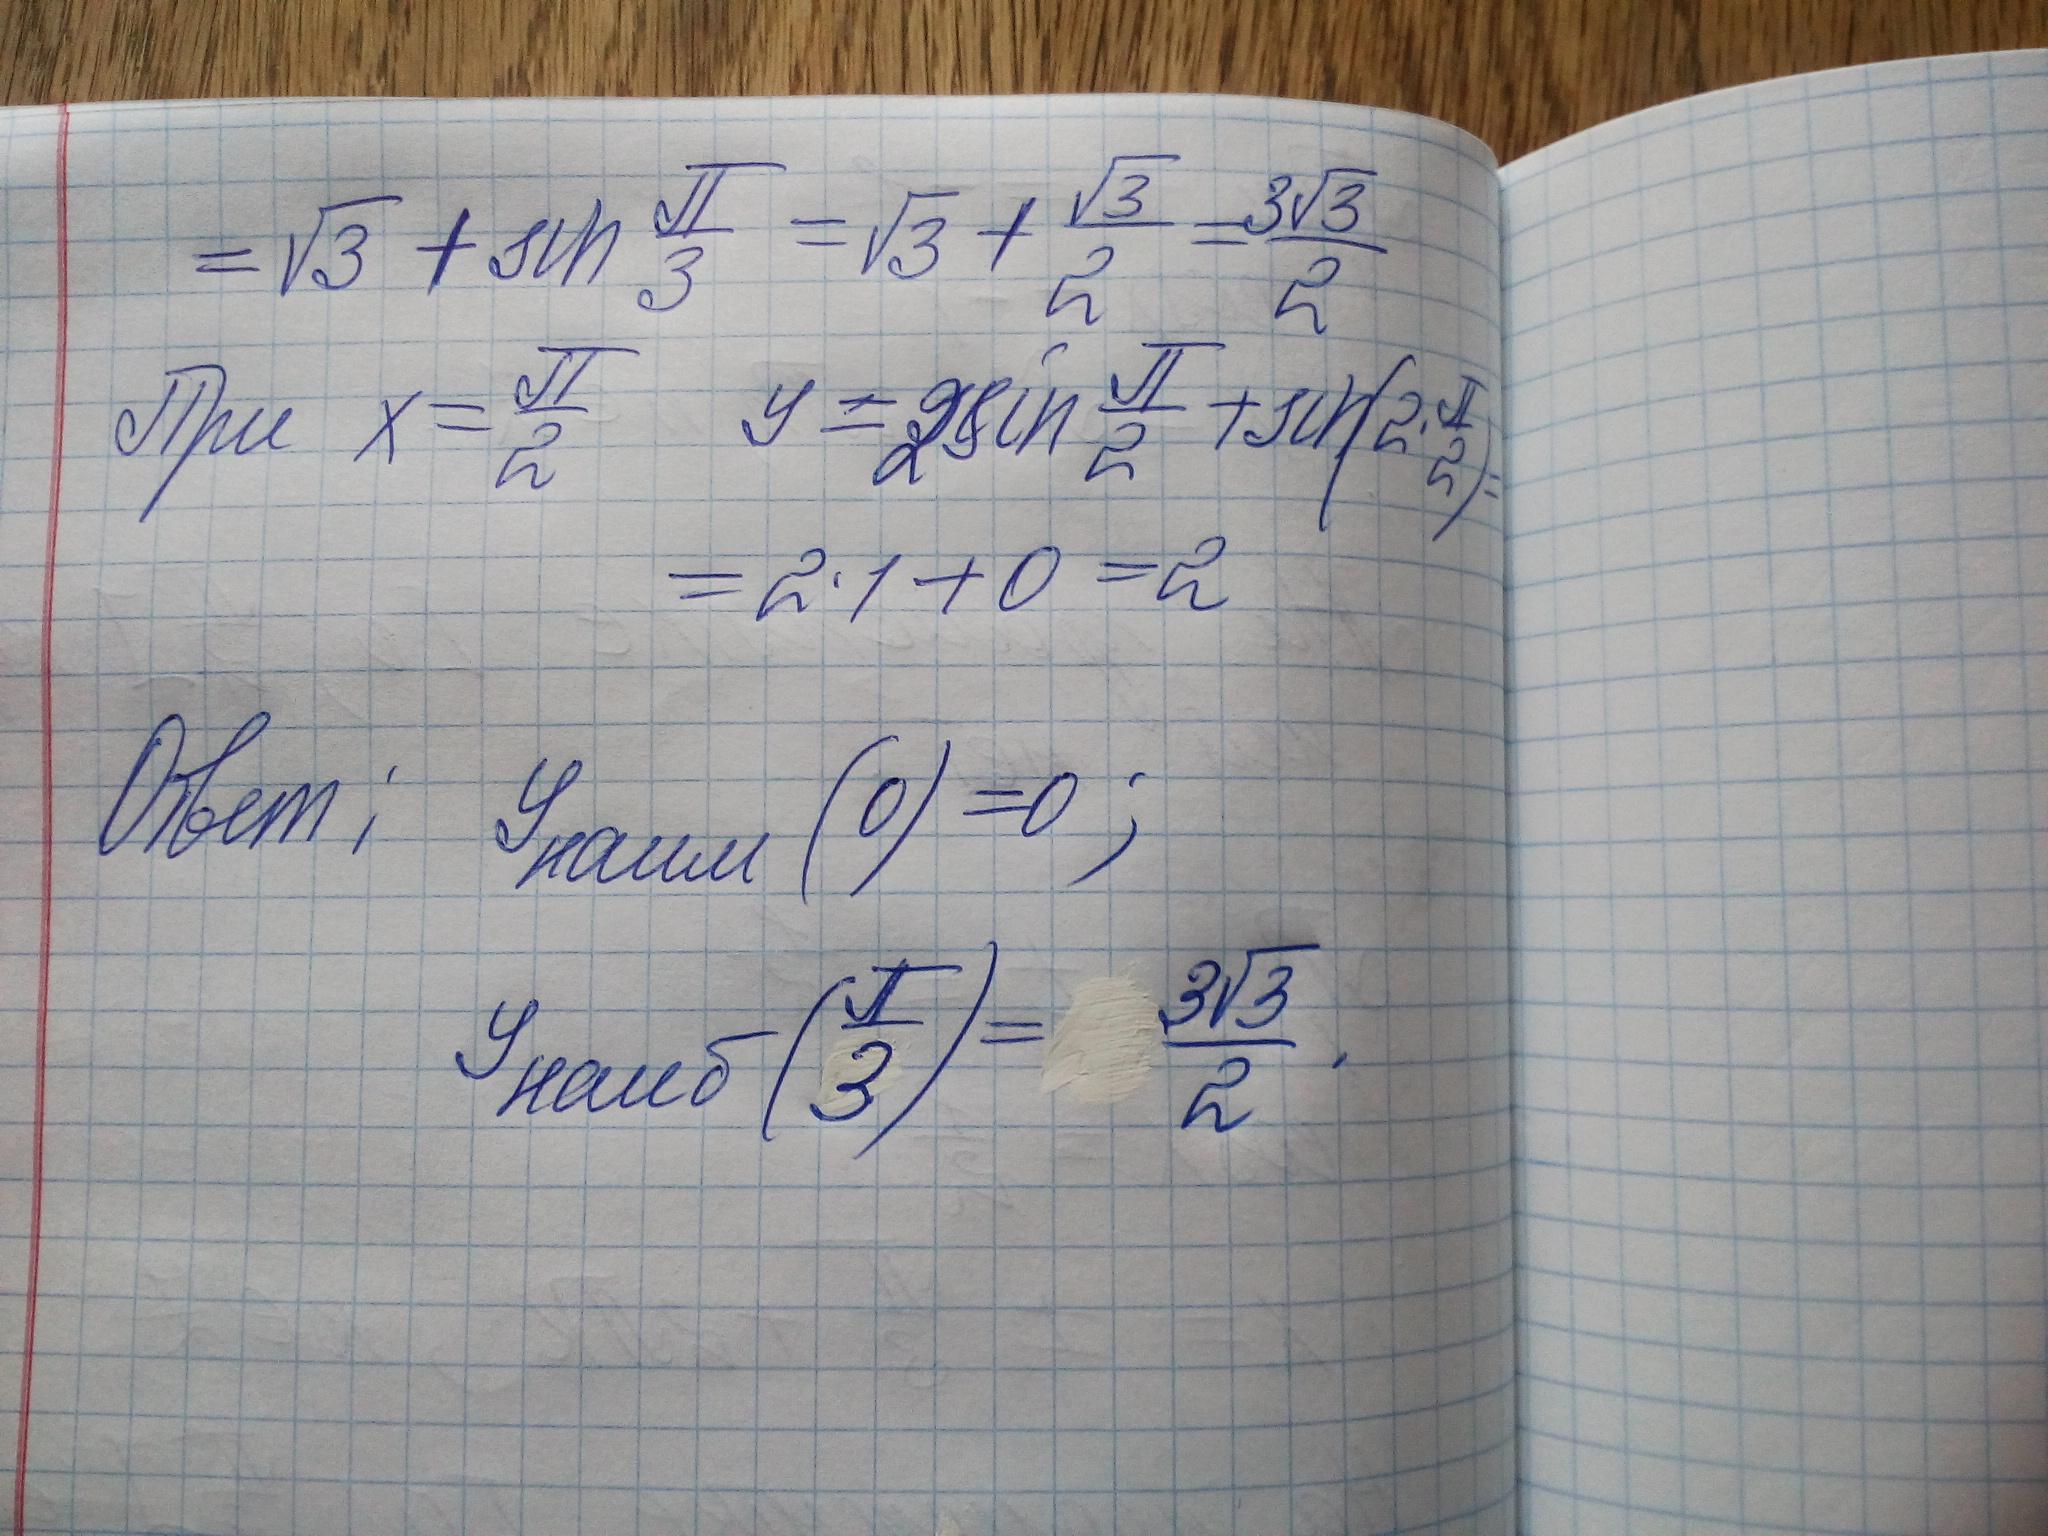 = √3 + sin π/3 = √3 + √3/2 = 3√3/2
При x = π/2 y = 2sin π/2 + sin(2·π/2) =
= 2·1 + 0 = 2
Ответ: Yнаим (0) = 0;
Yнаиб (π/3) = 3√3/2.